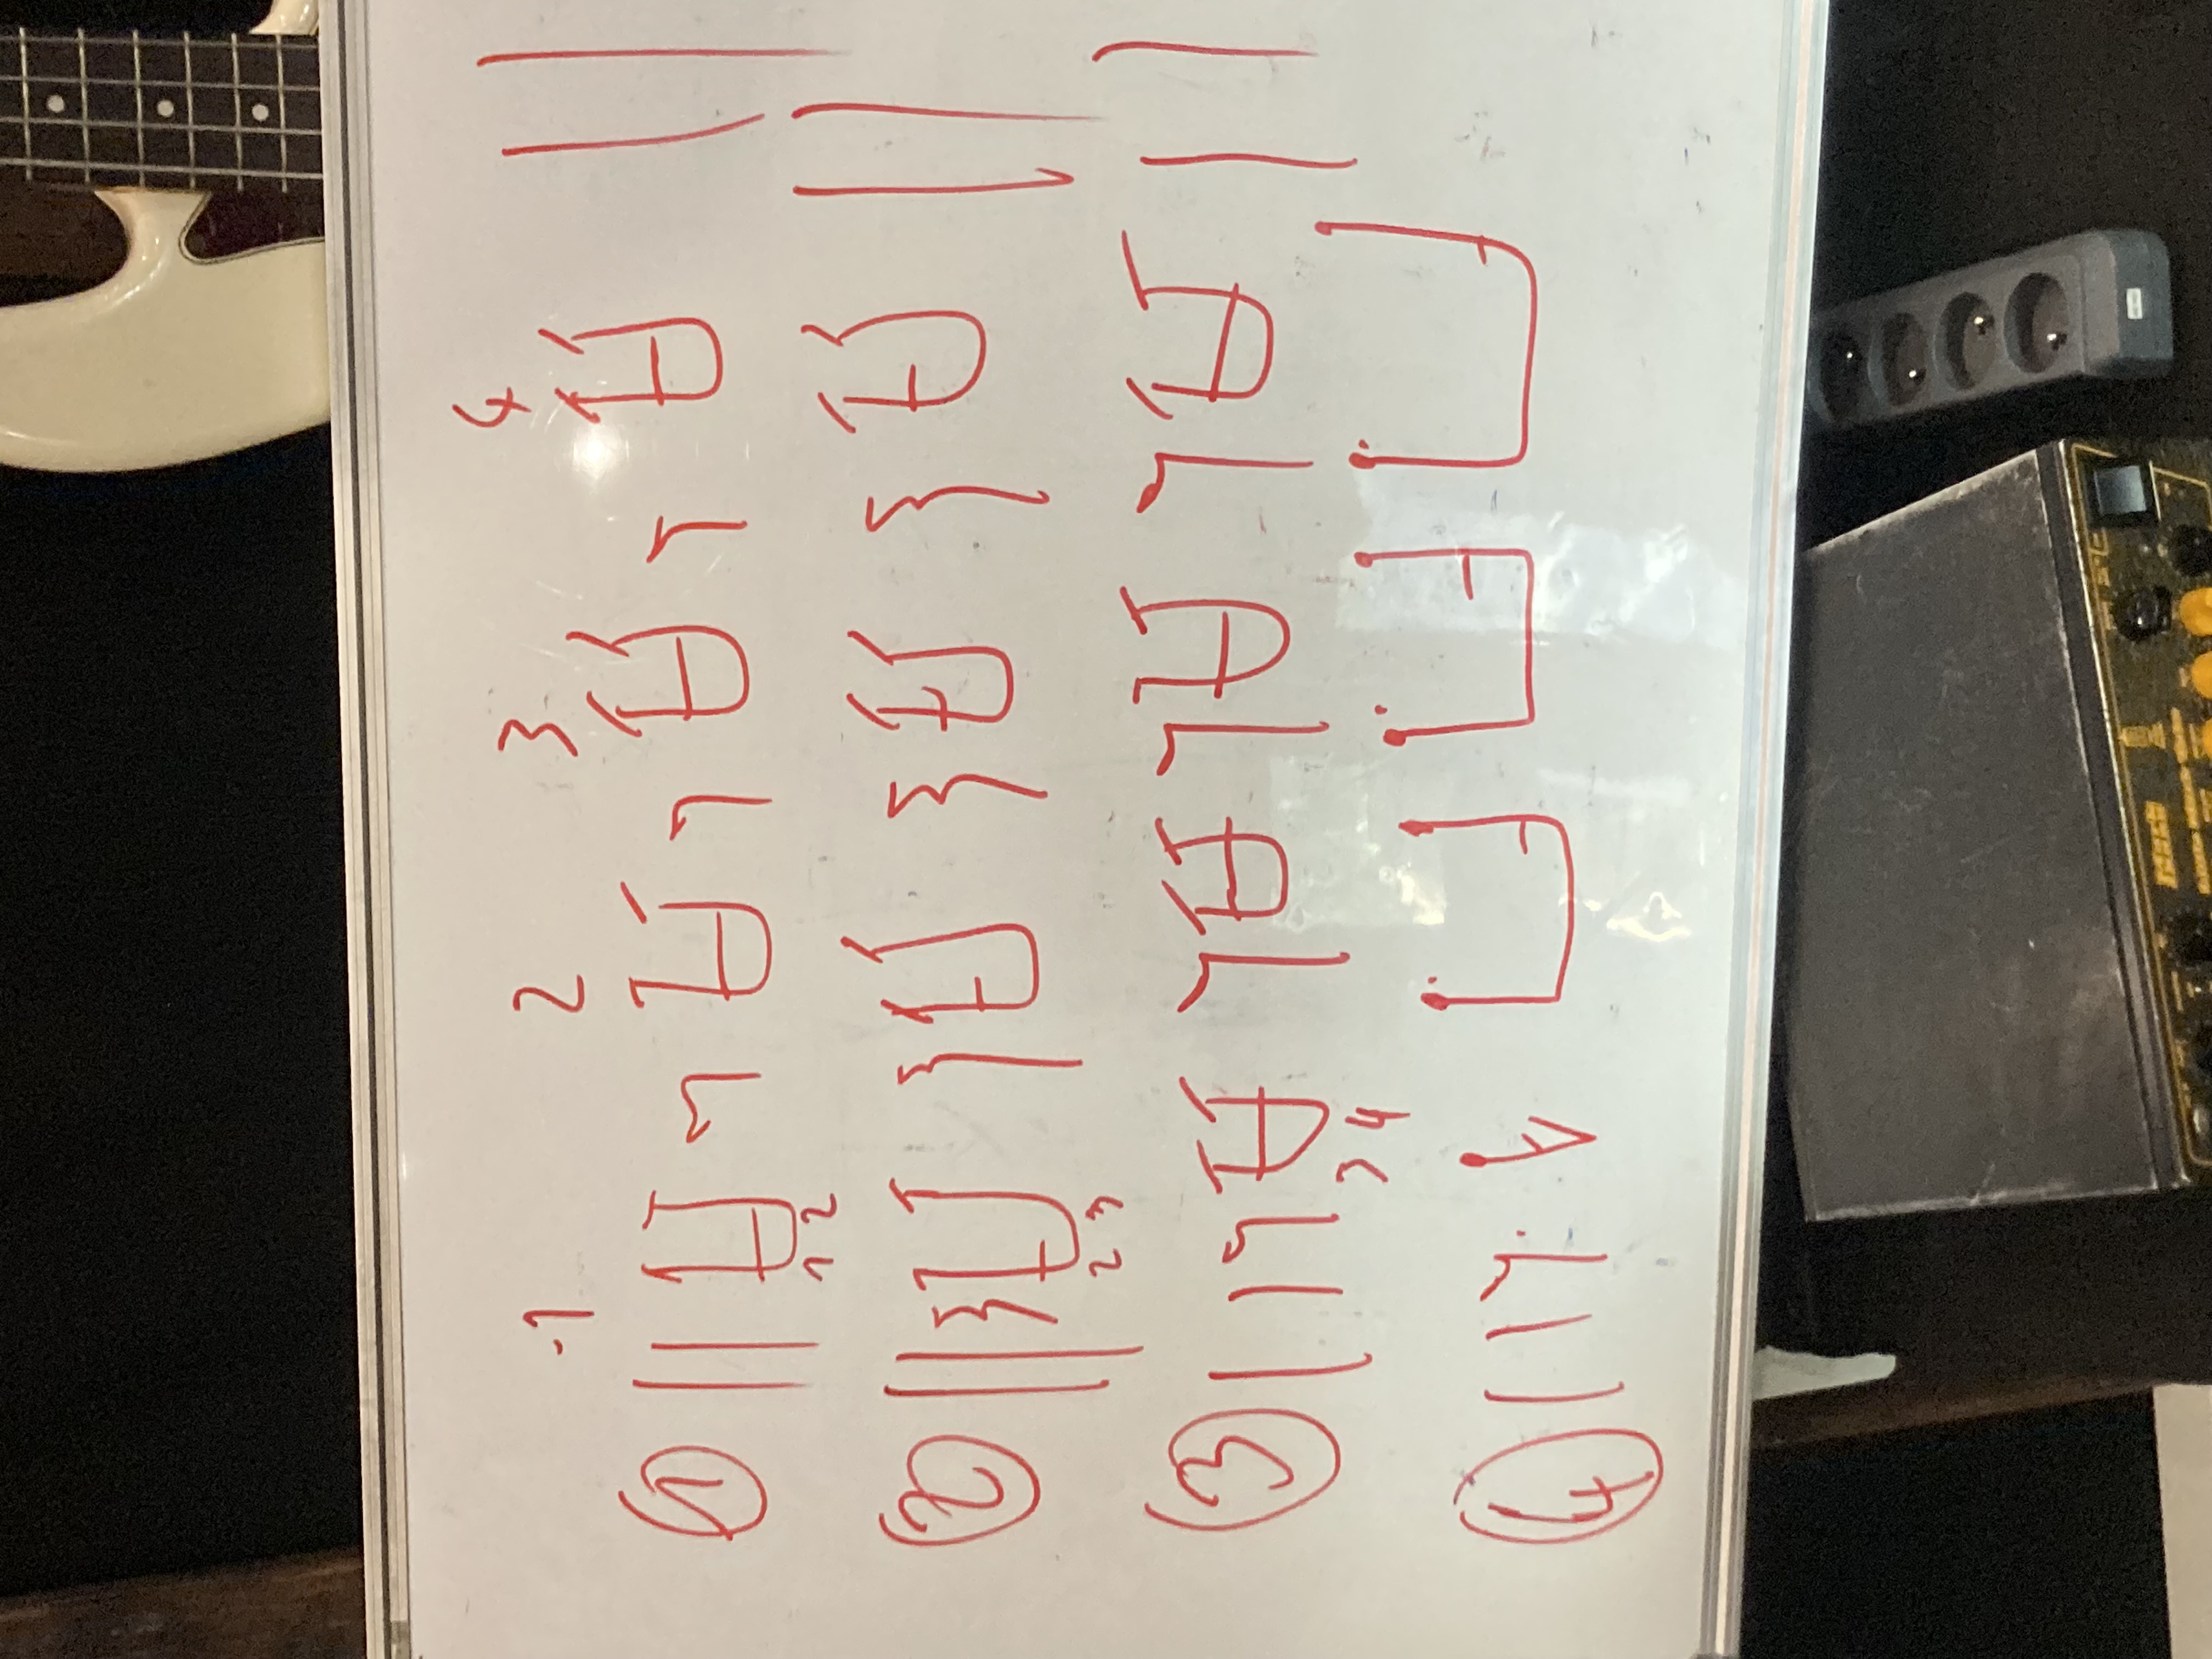 1 2 3 4
①
1 2
②
2 3
③
3 4
④